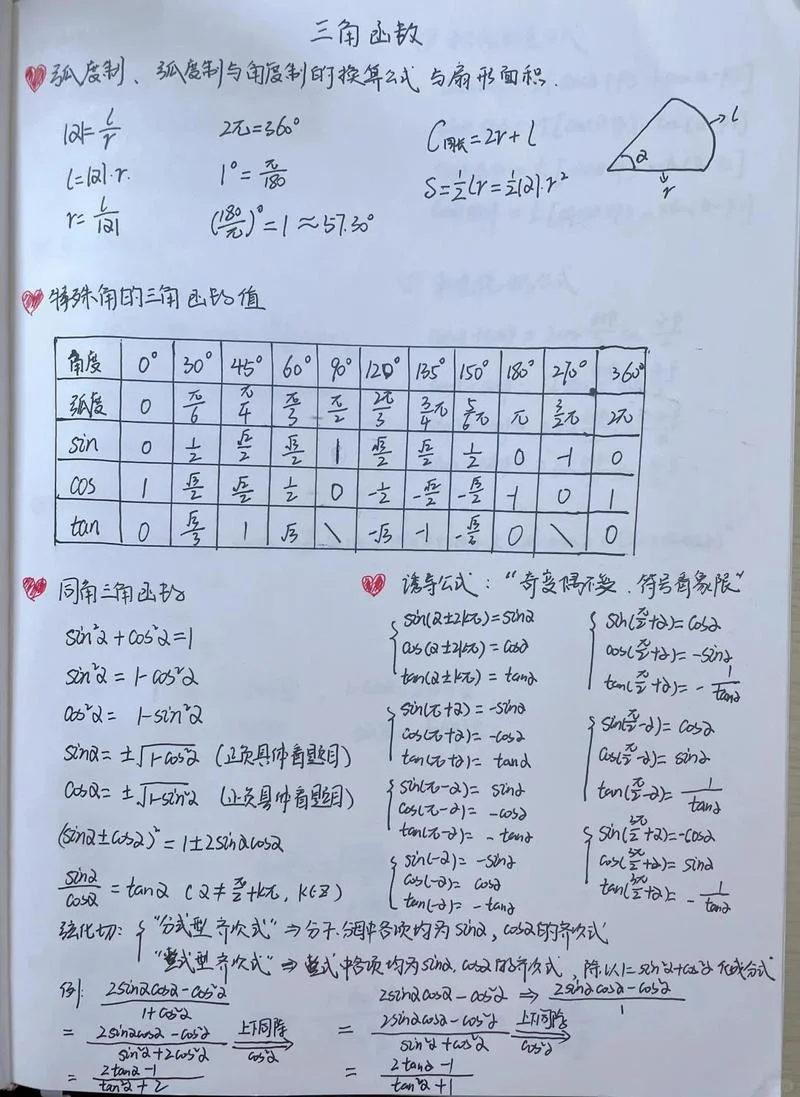 三角函数
弧度制、弧度制与角度制的换算公式与扇形面积.
|α|=l/r
l=|α|·r.
r=l/|α|
2π=360°
1°=π/180
(180/π)°=1≈57.30°
C周长=2r+l
S=1/2lr=1/2|α|·r²
α
l
r
特殊角的三角函数值
角度 0° 30° 45° 60° 90° 120° 135° 150° 180° 270° 360°
弧度 0 π/6 π/4 π/3 π/2 2π/3 3/4π 5/6π π 3/2π 2π
sin 0 1/2 √2/2 √3/2 1 √3/2 √2/2 1/2 0 -1 0
cos 1 √3/2 √2/2 1/2 0 -1/2 -√2/2 -√3/2 -1 0 1
tan 0 √3/3 1 √3 \ -√3 -1 0 \ 0
同角三角函数
sin²α+cos²α=1
sin²α=1-cos²α
cos²α=1-sin²α
sinα=±√1-cos²α (正负具体看题目)
cosα=±√1-sin²α (正负具体看题目)
(sinα±cosα)²=1±2sinαcosα
sinα/cosα=tanα (α≠π/2+kπ, k∈Z)
诱导公式:“奇变偶不变.符号看象限”
sin(α±2kπ)=sinα
cos(α±2kπ)=cosα
tan(α±kπ)=tanα
sin(π+α)=-sinα
cos(π+α)=-cosα
tan(π+α)=tanα
sin(π-α)=sinα
cos(π-α)=-cosα
tan(π-α)=-tanα
sin(-α)=-sinα
cos(-α)=cosα
tan(-α)=-tanα
sin(π/2+α)=cosα
cos(π/2+α)=-sinα
tan(π/2+α)=-1/tanα
sin(π/2-α)=cosα
cos(π/2-α)=sinα
tan(π/2-α)=1/tanα
sin(3π/2+α)=-cosα
cos(3π/2+α)=sinα
tan(3π/2+α)=-1/tanα
弦化切:“分式型齐次式”⇒分子.分母中各项均为sinα,cosα的齐次式
“整式型齐次式”⇒整式中各项均为sinα.cosα的齐次式,除以1=sin²α+cos²α化成分式
例:2sinαcosα-cos²α/1+cos²α
=2sinαcosα-cos²α/sin²α+2cos²α 上下同除cos²α
=2tanα-1/tan²α+2
2sinαcosα-cos²α⇒2sinαcosα-cos²α/1
=2sinαcosα-cos²α/sin²α+cos²α 上下同除cos²α
=2tanα-1/tan²α+1